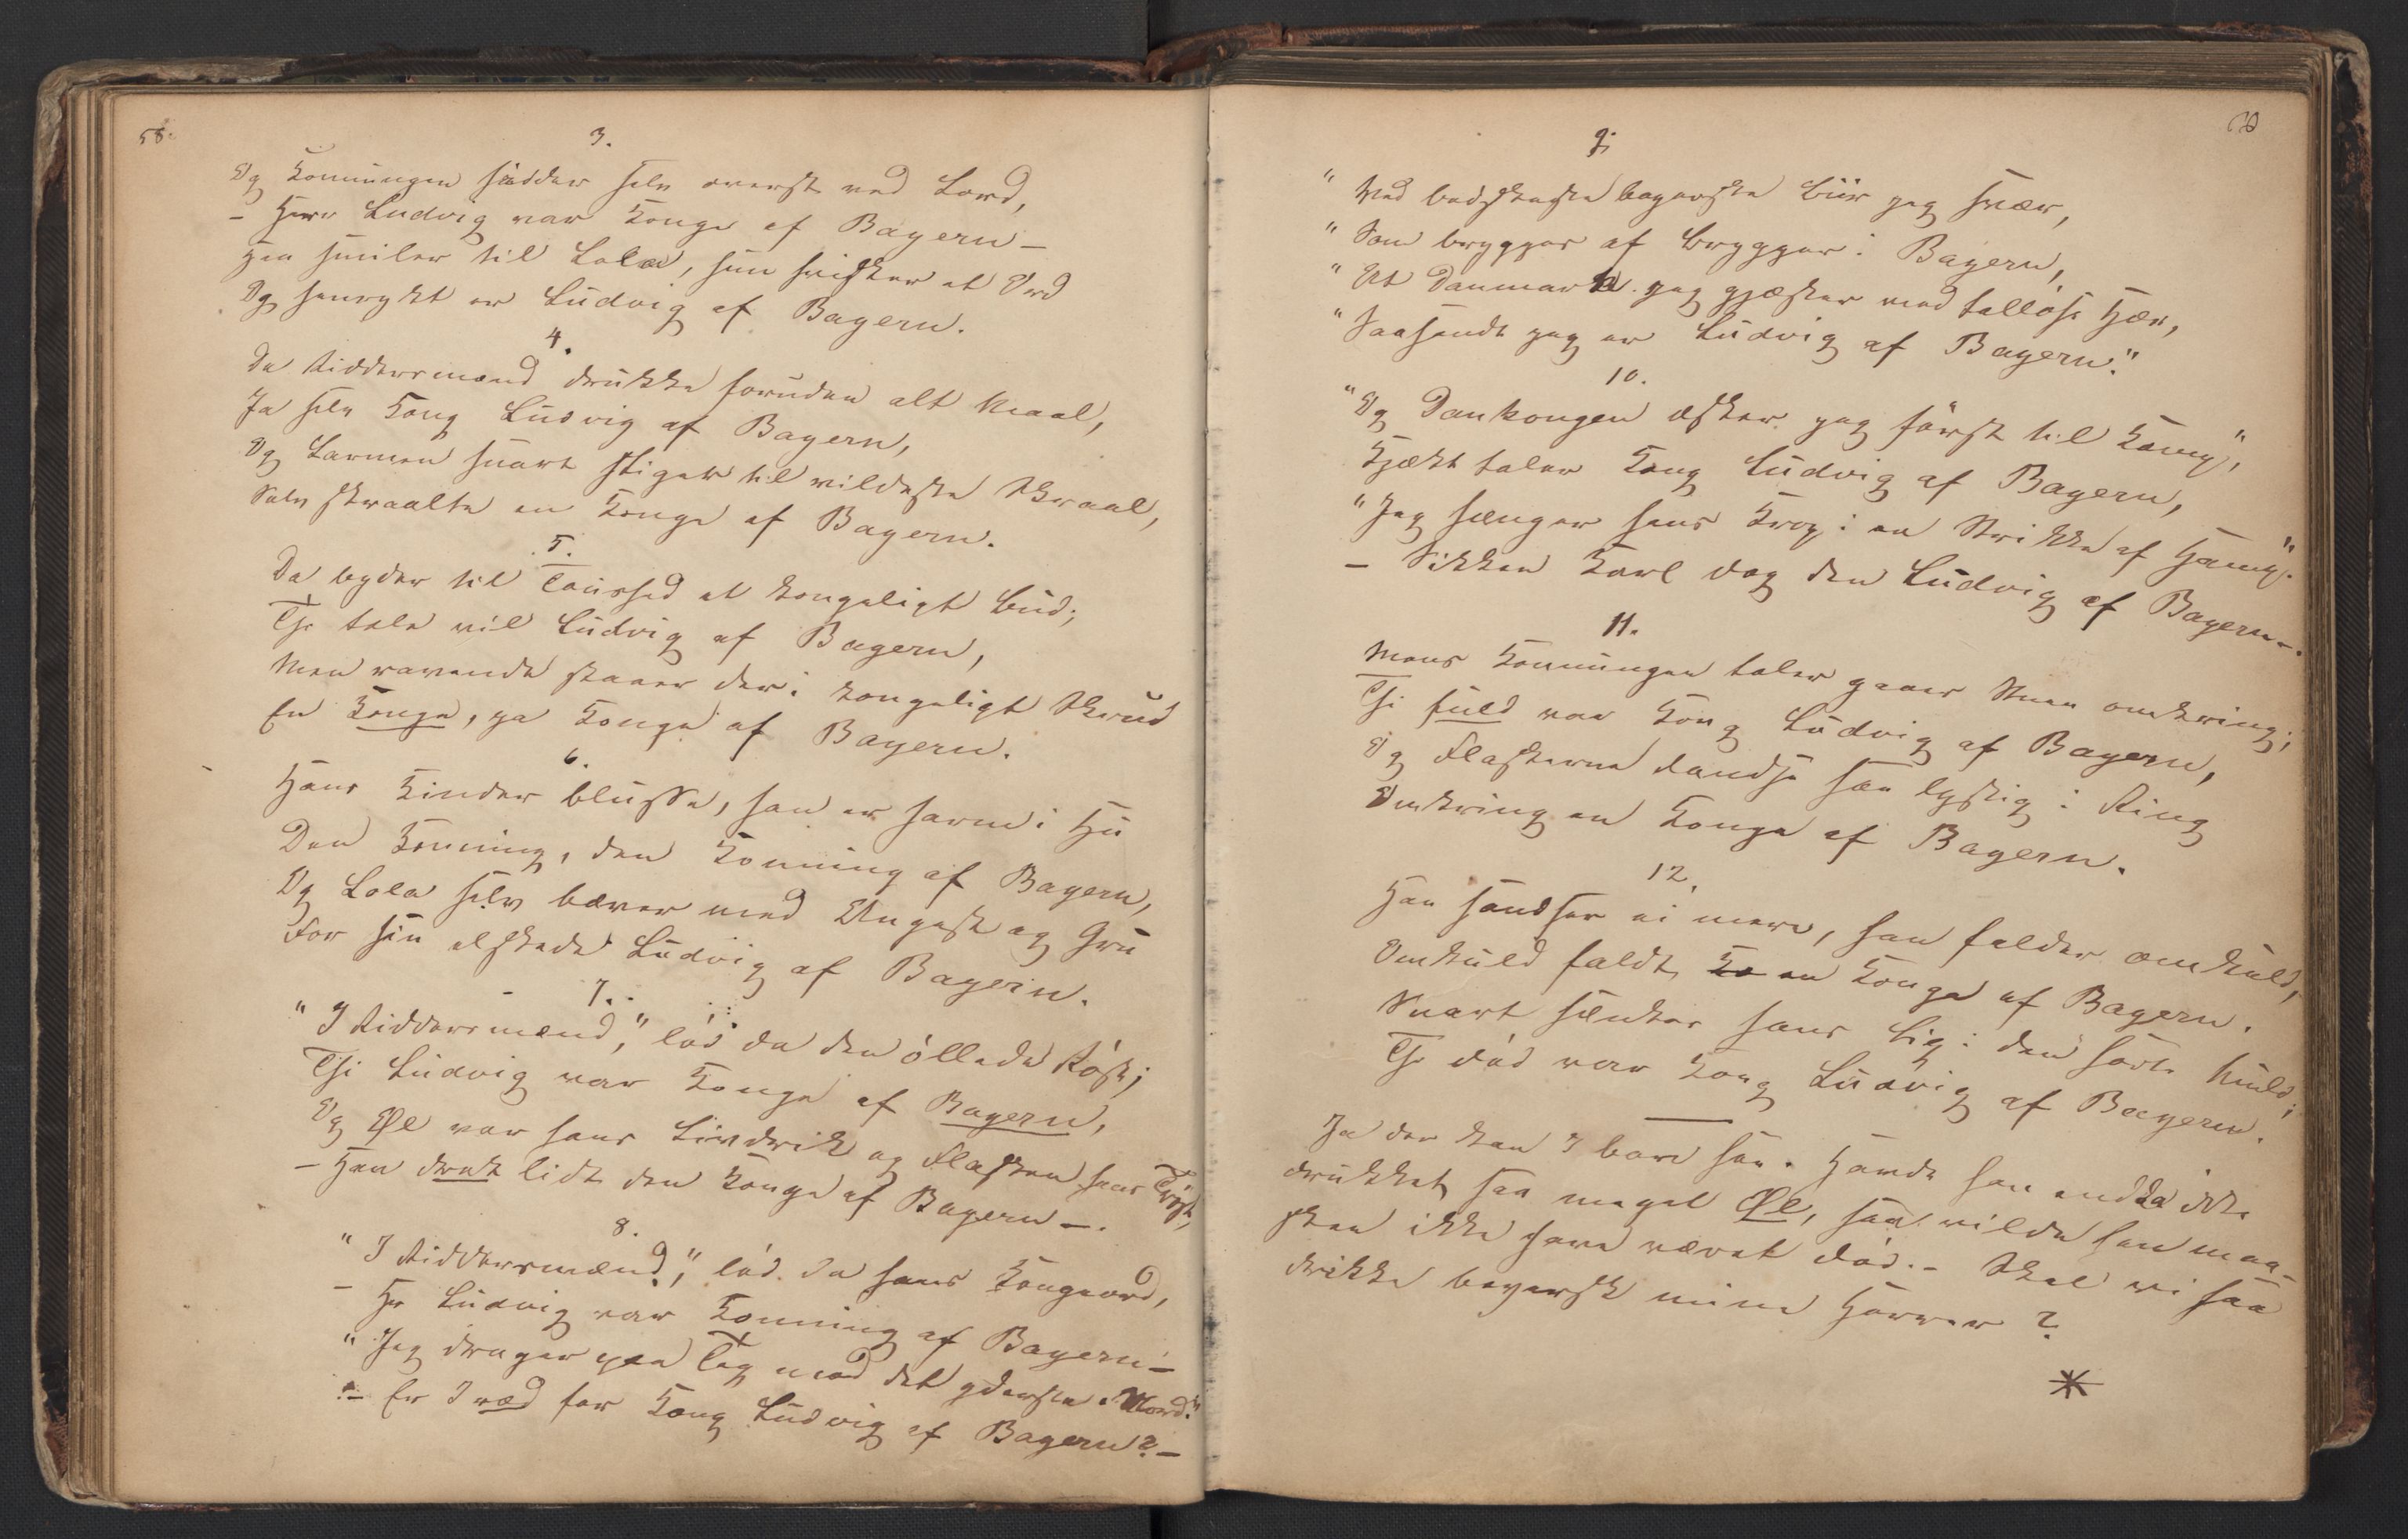 58.
3.
Og Konningen sidder selv øverst ved Bord,
– Herr Ludvig var Konge af Bayern –
Han smiler til Lola, hun hvisker et Ord
Og henrykt er Ludvig af Bayern.
4.
De Riddersmænd drukke foruden alt Maal,
Ja selv Kong Ludvig af Bayern,
Og Larmen snart stiger til vildeste Skraal,
Selv skraalte en Konge af Bayern.
5.
Da byder til Taushed et kongeligt Bud;
Thi tale vil Ludvig af Bayern,
Men ravende staaer der i kongeligt Skrud
En Konge, ja Konge af Bayern.
6.
Hans Kinder blusse, han er harm i Hu
Den Konning, den Konning af Bayern,
Og Lola selv bæver med Angest og Gru
For sin elskede Ludvig af Bayern.
7.
"I Riddersmænd," lød da den øllede Røst;
Thi Ludvig var Konge af Bayern,
Og Øl var hans Livdrik og Flasken hans Trøst,
– Han drak lidt den Konge af Bayern –.
8.
"I Riddersmænd," lød da hans Kongeord,
– Hr Ludvig var Konning af Bayern –
"Jeg drager paa Tog mod det yderste Nord."
– Er I ræd for Kong Ludvig af Bayern? –
9.
"Ved bedskeste bayerske Biir jeg svær,
"Som brygges af Brygger i Bayern,
"At Danmark jeg gjæster med talløse Hær,
"Saasandt jeg er Ludvig af Bayern."
10.
"Og Dankongen æsker jeg først til Kamp",
Kjækt taler Kong Ludvig af Bayern,
"Jeg hænger hans Krop i en Strikke af Hamp".
– Sikken Karl dog den Ludvig af Bayern –.
11.
Mens Konningen taler gaaer Stuen omkring;
Thi fuld var Kong Ludvig af Bayern,
Og Flaskerne dandse saa lystig i Ring
Omkring en Konge af Bayern.
12.
Han sandser ei mere, han falder omkuld,
Omkuld faldt en Konge af Bayern.
Snart sænkes hans Lig i den sorte Muld;
Thi død var Kong Ludvig af Bayern.
Ja der kan I bare see. Havde han endda ikke
drukket saa meget Øl, saa vilde han maa-
skee ikke have været død. – Skal vi saa
drikke bayersk mine Herrer?